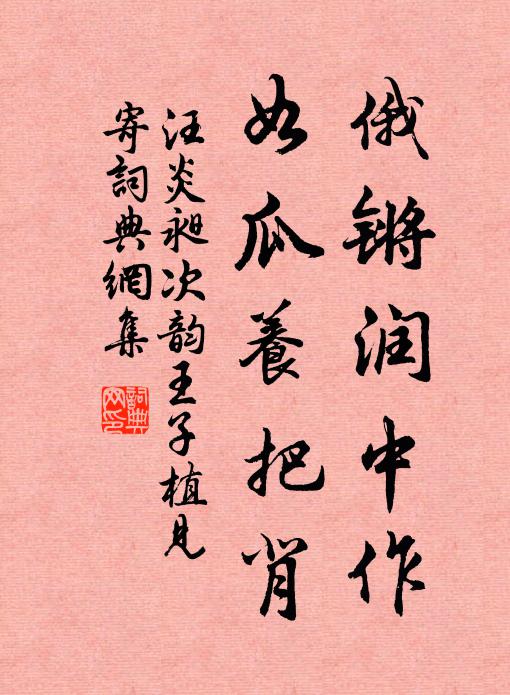 俄锵润中作
如瓜養把肯
汪炎昶次韵王子植見
寄詞典網集
詞典網印